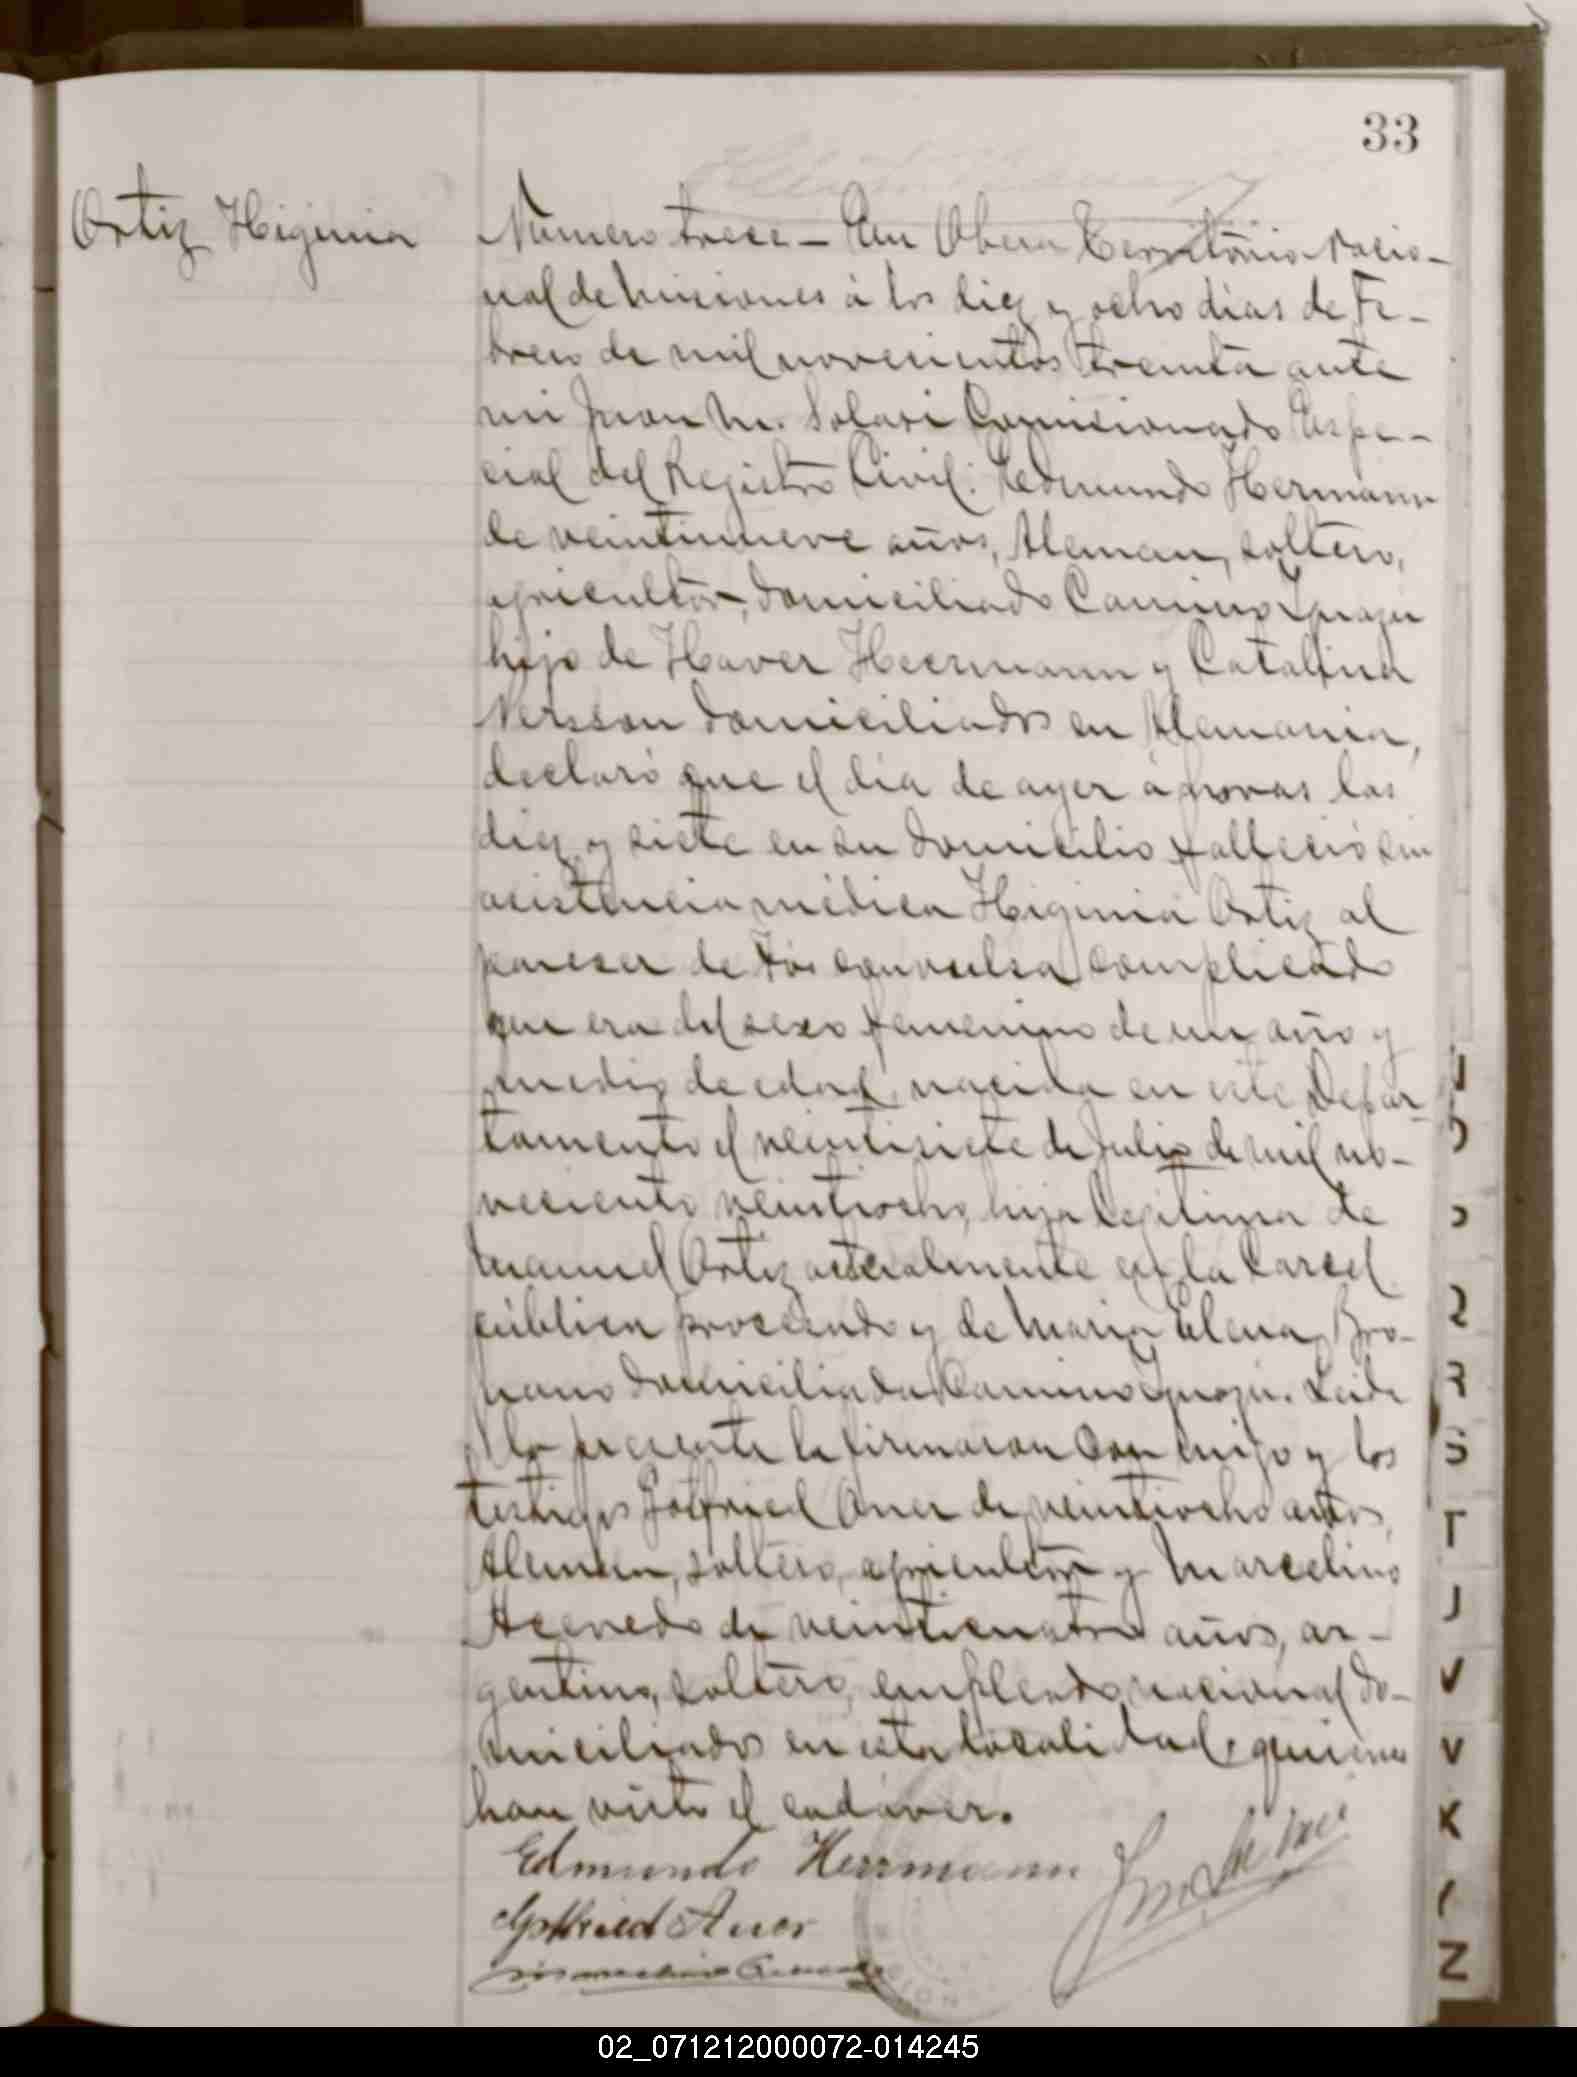 33
Ortiz Higinia
Número trece - En Obera Territorio Nacio-
nal de Misiones á los diez y ocho dias de Fe-
brero de mil novecientos treinta ante
mi Juan M. Solari Comisionado Espe-
cial del Registro Civil: Edmundo Hermann
de veintinueve años, Aleman, soltero,
agricultor, domiciliado Camino Yguazu
hijo de Haver Heermann y Catalina
Nersson domiciliados en Alemania,
declaró que el dia de ayer á horas las
diez y siete en su domicilio falleció sin
asistencia médica Higinia Ortiz al
pareser de tos convulsa complicado
que era del sexo femenino de un año y
medio de edad, nacida en este Depar-
tamento el veintisiete de Julio de mil no-
veciento veintiocho, hija legitima de
Manuel Ortiz actualmente en la Carcel
pública procesado y de Maria Elena
domiciliada Camino Yguazu. Leida
la presente la firmaron con migo y los
testigos Gotfried Auer de veintiocho años,
Aleman, soltero, agricultor y Marcelino
Acevedo de veinticuatro años, ar-
gentino, soltero, empleado nacional do-
miciliados en esta localidad, quienes
han visto el cadáver.
Edmundo Herrmann
Gottfried Auer
Marcelino Acevedo
2
R
S
T
J
V
V
K
Z
02_071212000072-014245